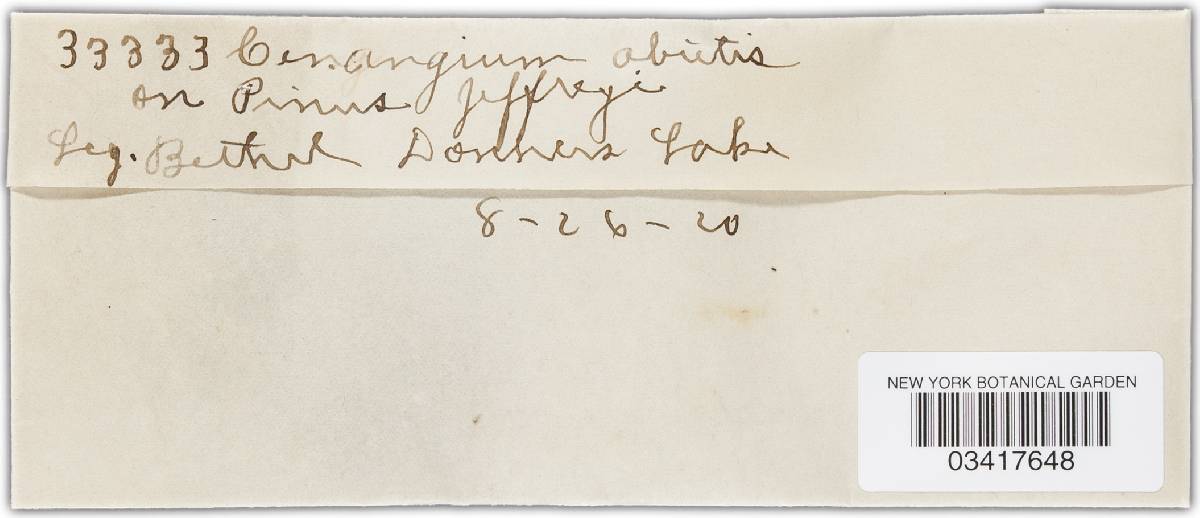 33333 Cenangium abietis
on Pinus jeffreyi
Leg. Bethel Donners Lake
8-26-20
NEW YORK BOTANICAL GARDEN
03417648